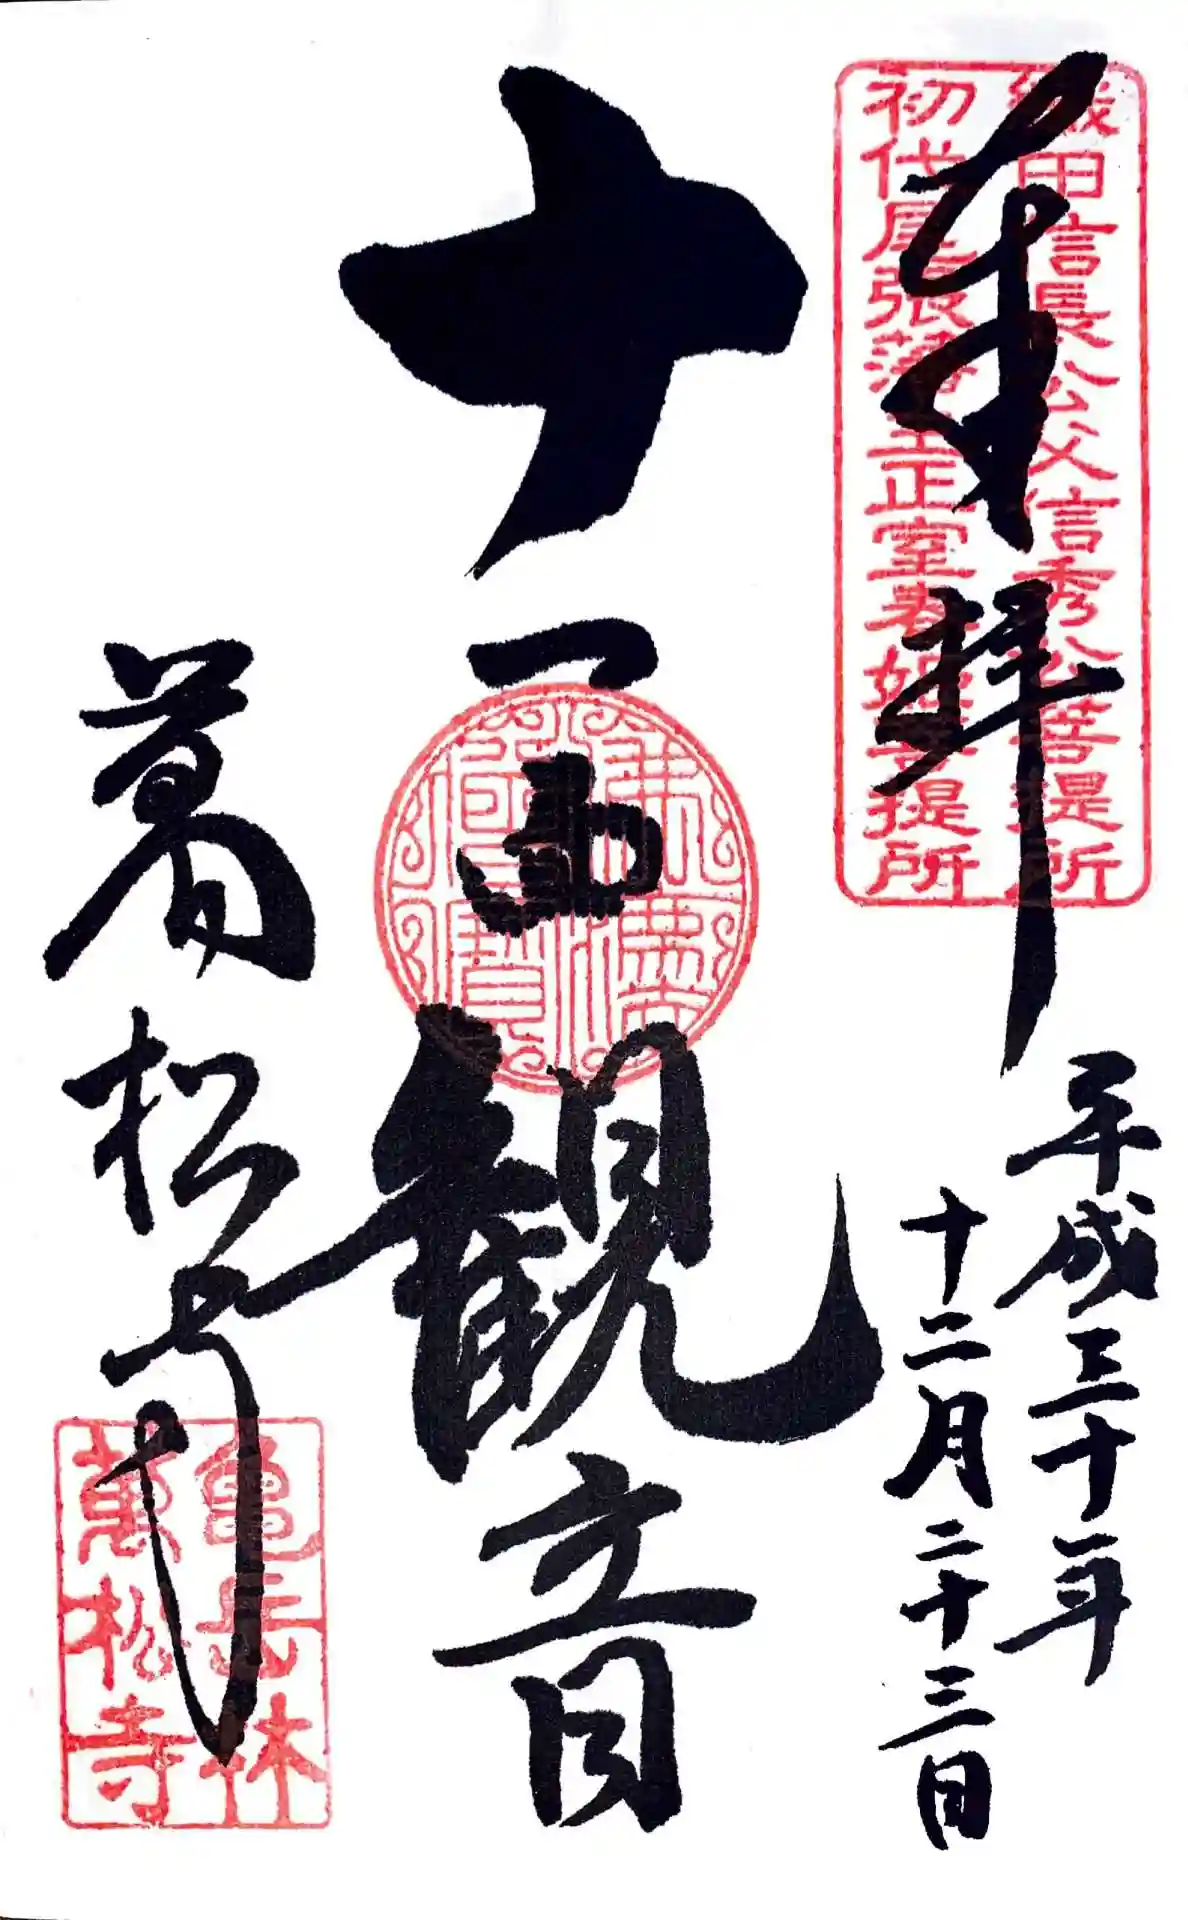 奉拝
織田信長公父信秀公菩提所
初代尾張藩主正室春姫菩提所
平成三十年
十二月二十三日
十一面観音
萬松寺
亀岳林
萬松寺